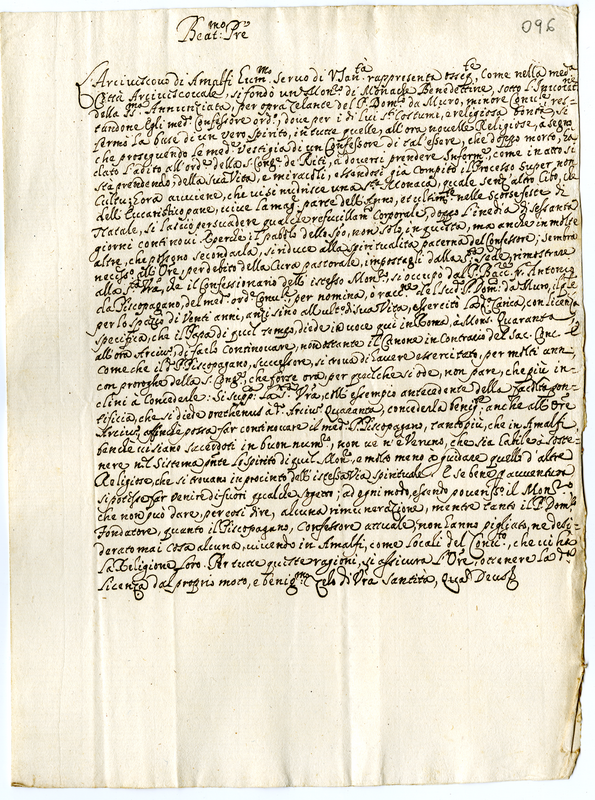 096
Beat.mo Pre
L'Arcivescovo di Amalfi Eum.mo Servo di V. San.ta rappresenta osseq.te, come nella med.a
Città Arcivescovale, si fondò un Mon.ro di Monache Benedettine, sotto l'
della SS. Annunziata, per opra zelante del P. Dom.co da Muro, minore Conv.le res-
tandone egli med.o Confessore ord.o, dove per i di lui S.ti Costumi, e religiosa bontà, si
fermò la base di un vero Spirito, in tutte quelle, all'ora novelle Religiose, a segno
che proseguendo le med.e vestigia di un Confessore di tal essere, che doppo morto, ha
dato l'adito all'ord.e della S. Cong.e de Riti, a doversi prendere Inform.e, come in atto si
sta prendendo, della sua Vita, e miracoli, essendosi già compito il Processo super non
Cultu; Ora avviene, che vi si nudrisce una S.ta Monaca, quale senz'altro Cibo, che
dell'Eucaristico pane, vive la mag.r parte dell'Anno, et ultim.te nelle scorse feste di
Natale, si lasciò persuadere qualche refucillam.to Corporale, doppo l'inedia di sessanta
giorni continovi. E perche il pabolo dello Spo, non solo in questa, ma anche in molte
altre, che possono secondarla, si riduce alla Spiritualità paterna del Confessore; sembra
necess.o all'Ore, per debito della Cura pastorale, impostagli dalla S. Sede, rimostrare
alla S.tà Vra, che il Confessionario dell'istesso Mon.ro, si occupò dal P. Bacc.re Antonio
da Piscopagano, del med.o ord.e Conv.le per nomina, o racc.ne de
per lo spazio di Venti anni, anzi sino all'ult.o di sua Vita, esercitò la d.a Carica, con licenza
specifica, che il Papa di quel tempo, diede in voce qui in Roma, à Mons. Quaranta
all'ora Arcivs.o, di farlo Continovare, non ostante il Canone in Contrario del Sac. Conc.
come che il P. Piscopagano, successore, si trova di havere essercitato, per molti anni
con proroghe della S. Cong.e, che forse ora per quelche si ode, non pare, che più in-
clini à Concederle: Si supp.ca la S.tà Vra, coll'essempio antecedente della facoltà pon-
tificia, che si diede oretenus a d.o Arcivs.o Quaranta, concederla benig.te anche all'Ore
Arcivs.o, affinche possa far continovare il med.o P. Piscopagano, tanto più, che in Amalfi,
benche vi siano sacerdoti in buon num.o, non ve n'è Veruno, che sia habile à soste-
nere nel Sistema pnte lo Spirito di quel Mon.ro, e molto meno à guidare quello d'altre
Religiose, che si trovano in procinto dell'istessa Via Spirituale. E se bene p avventura
si potesse far venire di fuori qualche sogetto; ad ogni modo, essendo poveriss.o il Mon.ro
che non può dare, per così dire, alcuna rimunerazione, mentre tanto il P. Dom.co
Fondatore, quanto il Piscopagano, Confessore attuale, non hanno pigliato, ne desi-
derato mai cosa alcuna, vivendo in Amalfi, come Locali del Conv.to, che vi hà
la Religione loro. Per tutte queste ragioni, si assicura l'Ore, ottenere la d.a
Licenza dal proprio moto, e benig.mo Zelo di Vra Santità, Quam Deus &